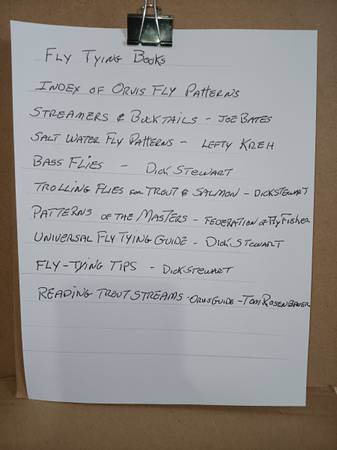 Fly Tying Books
Index of Orvis Fly Patterns
Streamers & Bucktails - Joe Bates
Salt Water Fly Patterns - Lefty Kreh
Bass Flies - Dick Stewart
Trolling Flies for Trout & Salmon - Dick Stewart
Patterns of the Masters - Federation of Fly Fisher
Universal Fly Tying Guide - Dick Stewart
Fly-Tying Tips - Dick Stewart
Reading Trout Streams - Orvis Guide - Tom Rosenbauer